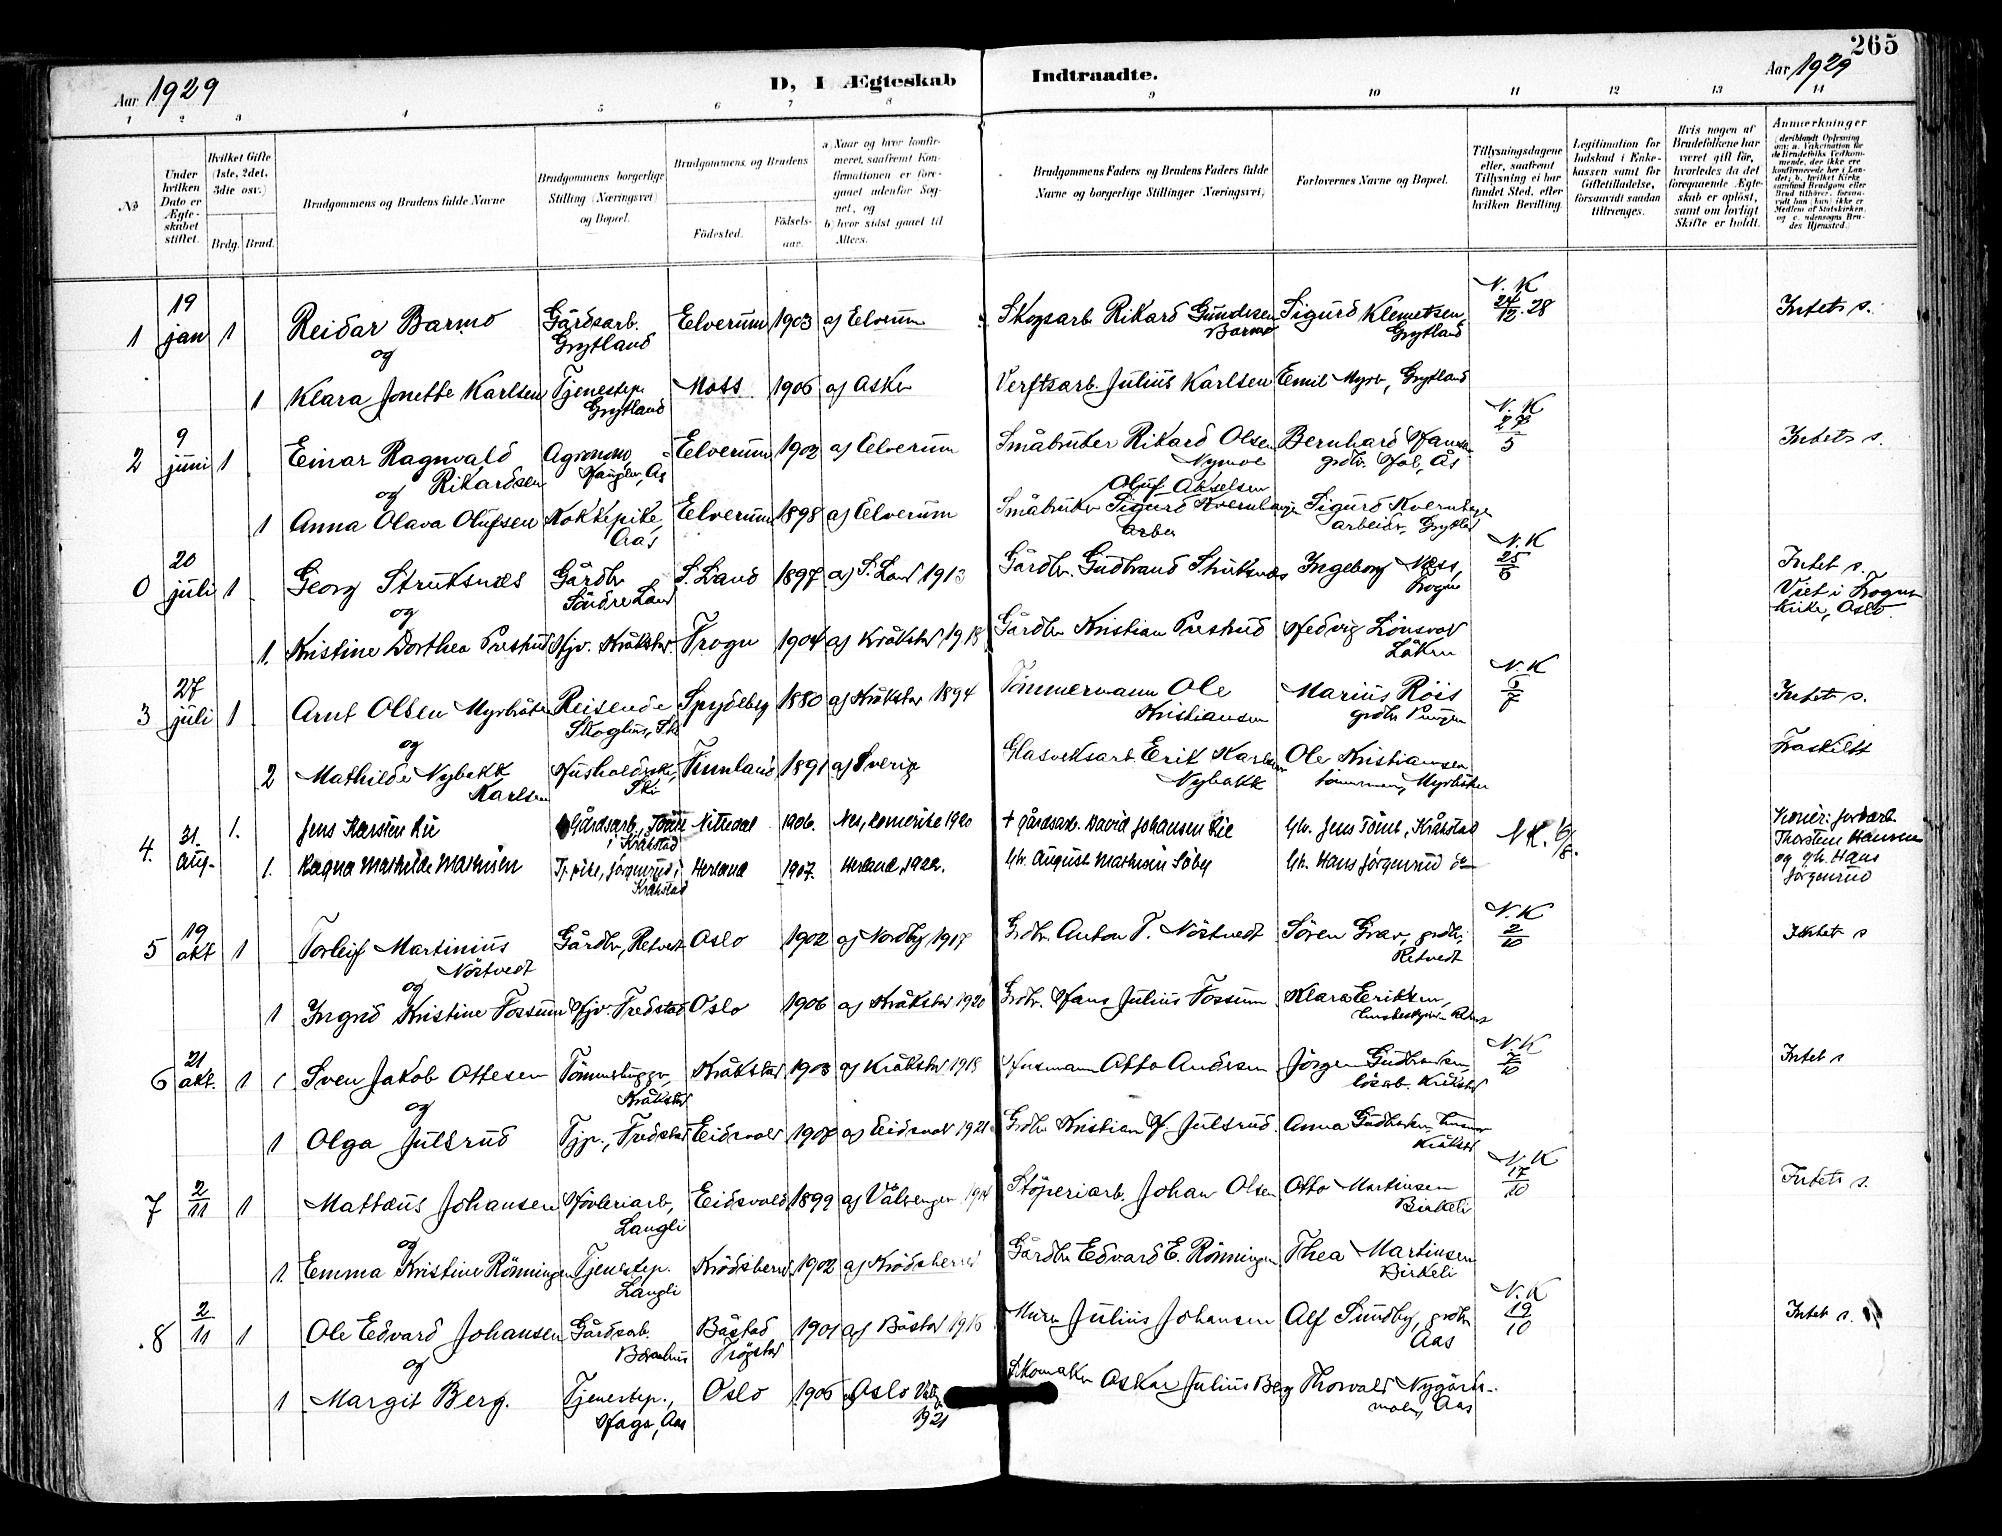 265
Aar 1929
D, I Ægteskab Indtraadte.
Aar 1929
1 2 3 4 5 6 7 8 9 10 11 12 13 14
No
Under hvilken Dato er Ægteskabet stiftet.
Hvilket Gifte (1ste, 2det, 3die osv.)
Brdg. Brud.
Brudgommens og Brudens fulde Navne
Brudgommens borgerlige Stilling (Næringsvei) og Bopæl.
Brudgommens og Brudens
Födested. Födsels-aar.
a) Naar og hvor konfirmeret, saafremt Konfirmationen er foregaaet udenfor Sognet, og
b) hvor sidst gaaet til Alters.
Brudgommens Faders og Brudens Faders fulde Navne og borgerlige Stillinger (Næringsvei)
Forlovernes Navne og Bopæl.
Tillysningsdagene eller, saafremt Tillysning ei har fundet Sted, efter hvilken Bevilling.
Legitimation for Indskud i Enkekassen samt for Giftetilladelse, forsaavidt saadan tiltrænges.
Hvis nogen af Brudefolkene har været gift för, hvorledes da det foregaaende Ægteskab er oplöst, samt om lovligt Skifte er holdt.
Anmærkninger
1 19 jan 1 Reidar Barmo Gårdsarb. Grytland Elverum 1903 af Elverum Skogsarb Rikard Gundersen Barmo Sigurd Klemetsen Grytland N. K 24/12.28 Intet s.
og
1 Klara Jonette Karlsen Tjenestep. Grytland Moss 1906 af Asker Verftsarb. Julius Karlsen Emil Myrv, Grytland
2 9 juni 1 Einar Ragnvald Rikardsen Agronom Elverum 1902 af Elverum Småbruker Rikard Olsen Nymoe Bernhard Hansen grdbr. Hol, Ås N. K 27/5 Intet s.
og
1 Anna Olava Olufsen Kokkepike, Aas Elverum 1898 af Elverum Småbruker Oluf Akselsen Sigurd Kvernhauge arbeider, Grytland
0 20 juli 1 Georg Struksnæs Gårdbr Söndre Land S. Land 1897 af S. Land 1913 Gårdbr. Gudbrand Struksnæs Ingeborg Næss, Frogn N. K 25/6 Intet s.
Viet i Frogner kirke, Oslo.
og
1. Kristine Dorthea Prestrud Hjv. Kråkstad Frogn 1904 af Kråkstad 1918 Gårdbr Kristian Prestrud Hedvig
3 27 juli 1 Arnt Olsen Myrbråten Reisende Skoglund, Ski Spydeberg 1880 af Kråkstad 1894 Tömmermann Ole Kristiansen Marius Röis grdbr N. K 5/7 Intet s.
og
2 Mathilde Nybakk Karlsen Husholderske, Ski Finnland 1891 af Sverige Glasverksarb. Erik Karlsen Nybakk Ole Kristiansen tömmerm, Myrbråten Fraskilt
4. 31. Aug. 1. Jens Karsten Lie Gårdsarb., Tömte i Kråkstad Nittedal 1906. Nes, Romerike 1920 + gårdsarb. David Johansen Lie Gbr. Jens Tömt, Kråkstad N K. 16/8.
1. Ragna Mathilde Mathisen Tj. pike, Jörgenrud i Kråkstad Herland 1907. Herland, 1922. Gbr. August Mathisen Söby Gbr. Hans Jörgenrud do
Thorstein Hansen og gb. Hans Jörgenrud
5 19 okt 1 Torleif Martinius Nöstvedt Gårdbr, Retvedt Oslo 1902 af Nordby 1917 Grdbr. Anton T. Nöstvedt Sören Grav, grdbr, Retvedt N. K 2/10 Intet s
og
1 Ingrid Kristine Fossum Hjv. Fredstad Oslo 1906 af Kråkstad 1920 Grdbr. Hans Julius Fossum Klara Eriksen,
6 21 okt. 1 Sven Jakob Ottesen Tömmerhugger, Kråkstad Kråkstad 1903 af Kråkstad 1918 Husmann Otto Andersen Jörgen Gudbrandsen, Kråkstad N. K 7/10 Intet s
og
1 Olga Julsrud Tjp., Fredstad Eidsvold 1907 af Eidsvold 1921 Grdbr Kristian H. Julsrud. Anna Gudbrandsen, Kråkstad
7 2/11 1 Mattæus Johansen Höveleriarb, Langli Eidsvold 1899 af Vålerengen 1914 Stöperiarb. Johan Olsen Otto Martinsen Birkeli N. K 17/10 Intet s.
og
1. Emma Kristine Rönningen Tjenestep. Langli Krödsherred 1902 af Krödsherred Gårdbr Edvard E. Rönningen Thea Martinsen Birkeli
8 2/11 1 Ole Edvard Johansen Gårdsarb. Båstad Trögstad 1901 af Båstad 1916 Murer Julius Johansen Alf Sundby, grdbr Aas N. K 19/10 Intet s.
og
1 Margit Berg. Tjenestep., Haga, Aas Oslo 1906 af Oslo 1921 Skomaker Oskar Julius Berg Thorvald Nygård maler, Aas